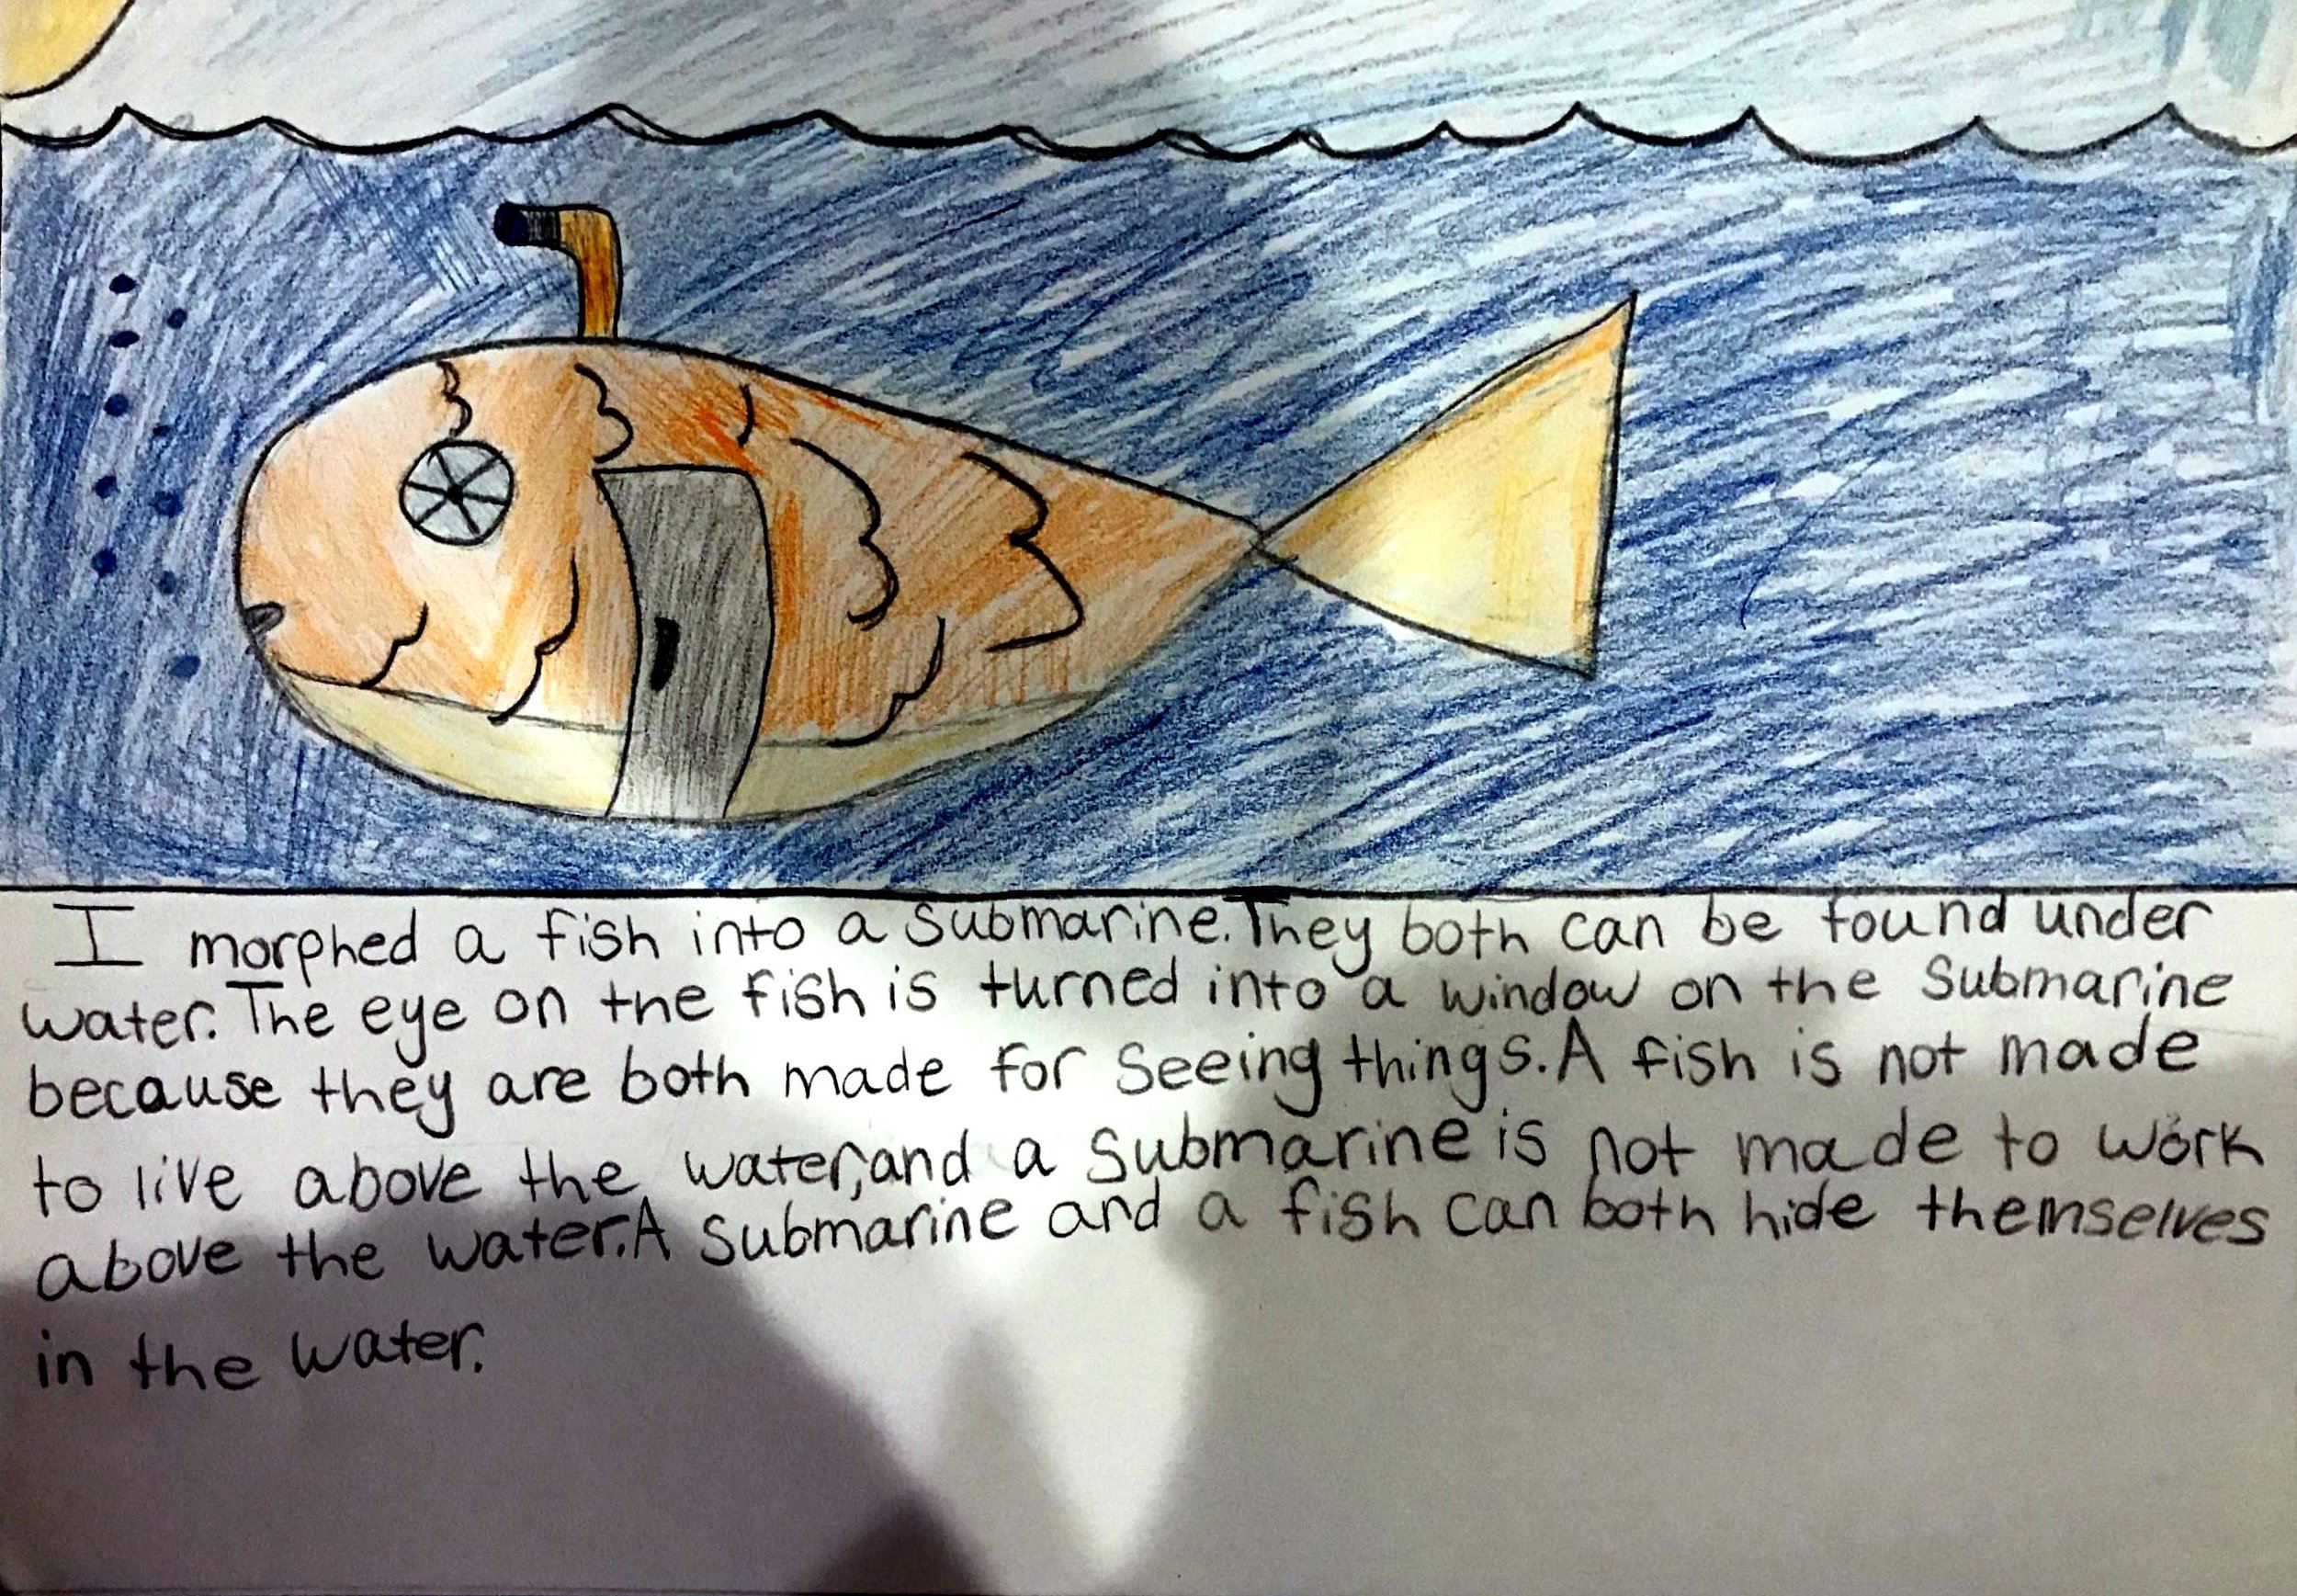 I morphed a fish into a submarine. They both can be found under
water. The eye on the fish is turned into a window on the submarine
because they are both made for seeing things. A fish is not made
to live above the water, and a submarine is not made to work
above the water. A submarine and a fish can both hide themselves
in the water.